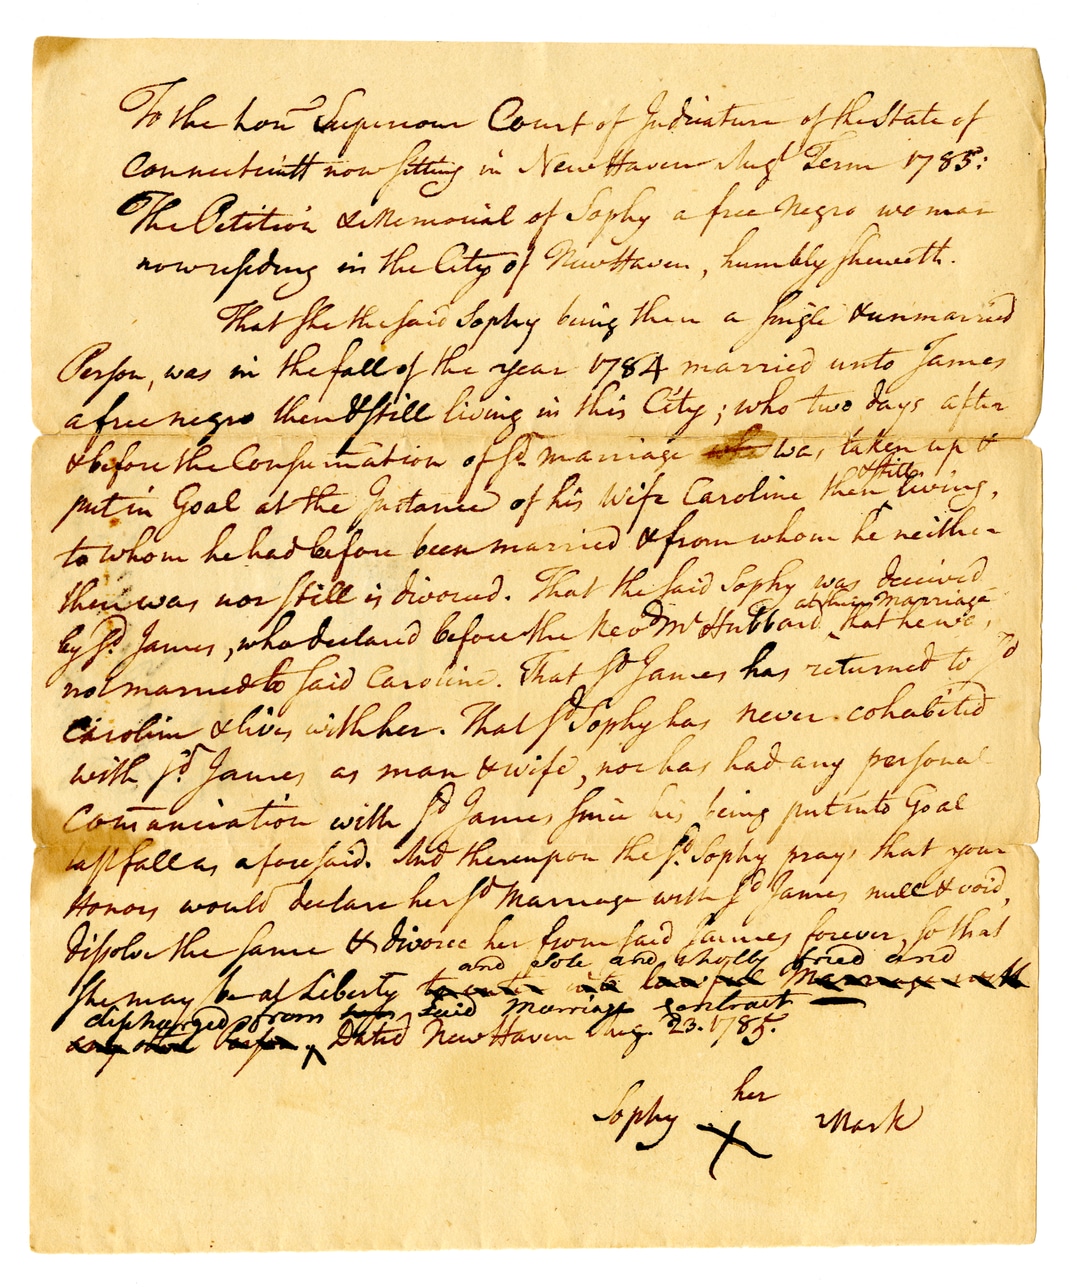 To the hon.ᵉ Superiour Court of Judicature of the State of
Connecticutt now sitting in New Haven Augᵗ Term 1785:
The Petition & Memorial of Sophy a free Negro woman
now residing in the City of New Haven, humbly sheweth.
That She the said Sophy being then a single & unmarried
Person, was in the fall of the year 1784 married unto James
a free negro then & still living in this City; who two days after
& before the Consumation of sᵈ marriage who was taken up &
put in Goal at the Instance of his Wife Caroline then & still living,
to whom he had before been married & from whom he neither
then was nor still is divorced. That the said Sophy was deceived
at their Marriage
by sᵈ James, who declared before the Revᵈ Mʳ Hubbard that he was
not married to said Caroline. That sᵈ James has returned to sᵈ
Caroline & lives with her. That sᵈ Sophy has never cohabited
with sᵈ James as man & wife, nor has had any personal
Comunication with sᵈ James since his being put into Goal
last fall as aforesaid. And thereupon the sᵈ Sophy prays that your
Honors would declare her sᵈ Marriage with sᵈ James null & void,
dissolve the same & divorce her from said James forever, so that
and sole and wholly fried and
She may be at Liberty to enter into lawful Marriage with
discharged from said Marriage contract
any other Person, Dated New Haven Aug. 23. 1785.
her
Sophy X Mark